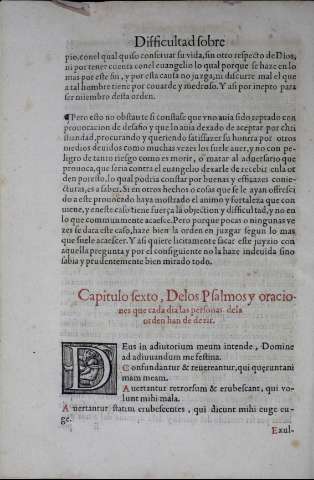 Difficultad sobre
pio, con el qual quiso conseruar su vida, sin otro respecto de Dios,
ni por tener cuenta con el euangelio lo qual porque se haze en lo
mas por este fin, y por esta causa no juzga, ni discurre mal el que
a tal hombre tiene por couarde y medroso. Y asi por inepto para
ser miembro desta orden.
¶Pero esto no obstante si constase que vno auia sido reptado con
prouocacion de desafio y que lo auia dexado de aceptar por christiandad,
procurando y queriendo satisfazer su honrra por otros
medios deuidos como muchas vezes los suele auer, y no con peligro
de tanto riesgo como es morir, o matar al aduersario que
prouoca, que seria contra el euangelio dexarle de recebir en la orden
por esto, lo qual podria constar por buenas y efficazes coniecturas,
es a saber. Si en otros hechos o cosas que se le ayan offrescido
a este prouocado haya mostrado el animo y fortaleza que conuiene,
y en este caso tiene fuerça la objection y difficultad, y no en
lo que communmente acaesce. Pero porque pocas o ningunas vezes
se da este caso, haze bien la orden en juzgar segun lo mas
que suele acaescer. Y asi quiere licitamente sacar este juyzio con
aquella pregunta y por el consiguiente no la haze indeuida sino
sabia y prudentemente bien mirado todo.
Capitulo sexto, Delos Psalmos y oraciones
que cada dia las personas dela
orden han de dezir.
DEus in adiutorium meum intende, Domine
ad adiuuandum me festina.
Confundantur & reuereantur, qui querunt ani
mam meam.
Auertantur retrorsum & erubescant, qui volunt
mihi mala.
Auertantur statim erubescentes, qui dicunt mihi euge euge.
Exul-